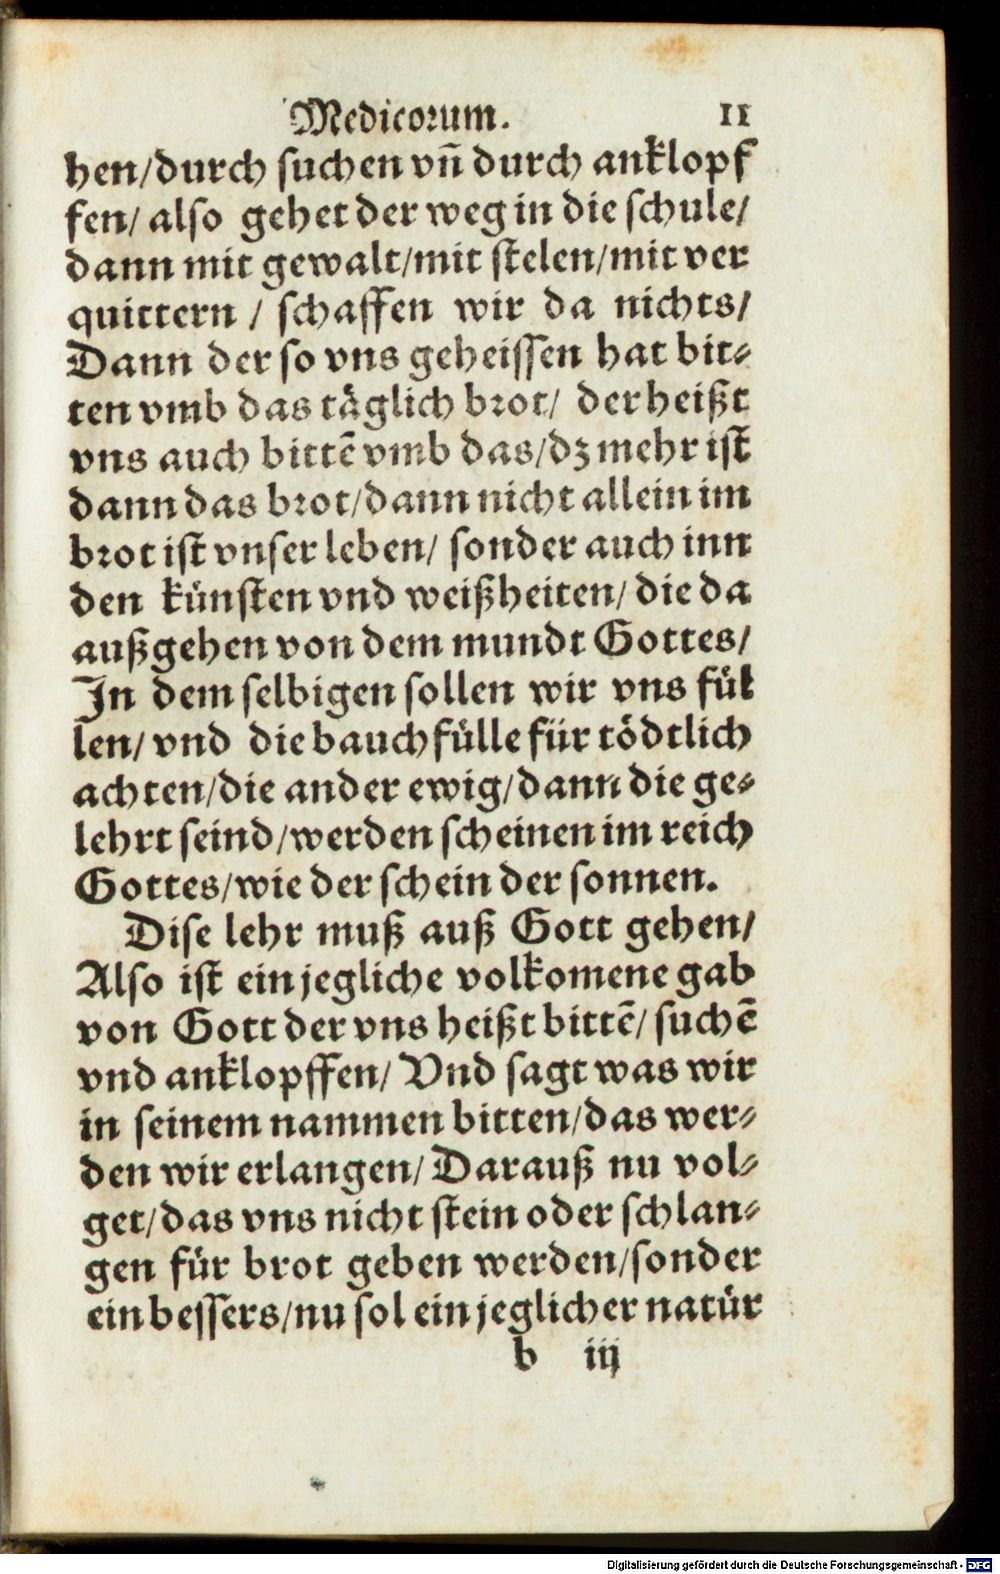 Medicorum. 11
hen/durch suchen vñ durch anklopf
fen/ also gehet der weg in die schule/
dann mit gewalt/mit stelen/mit ver
quittern / schaffen wir da nichts/
Dann der so vns geheissen hat bit⸗
ten vmb das täglich brot/ der heißt
vns auch bittẽ vmb das/dz mehr ist
dann das brot/dann nicht allein im
brot ist vnser leben/ sonder auch inn
den künsten vnd weißheiten/ die da
außgehen von dem mundt Gottes/
In dem selbigen sollen wir vns fül
len/ vnd die bauchfülle für tödtlich
achten/die ander ewig/dann die ge⸗
lehrt seind/werden scheinen im reich
Gottes/wie der schein der sonnen.
Dise lehr muß auß Gott gehen/
Also ist ein jegliche volkomene gab
von Gott der vns heißt bittẽ/ suchẽ
vnd anklopffen/ Vnd sagt was wir
in seinem nammen bitten/das wer⸗
den wir erlangen/ Darauß nu vol⸗
get/das vns nicht stein oder schlan⸗
gen für brot geben werden/sonder
ein bessers/nu sol ein jeglicher natür
b iij
Digitalisierung gefördert durch die Deutsche Forschungsgemeinschaft - DFG